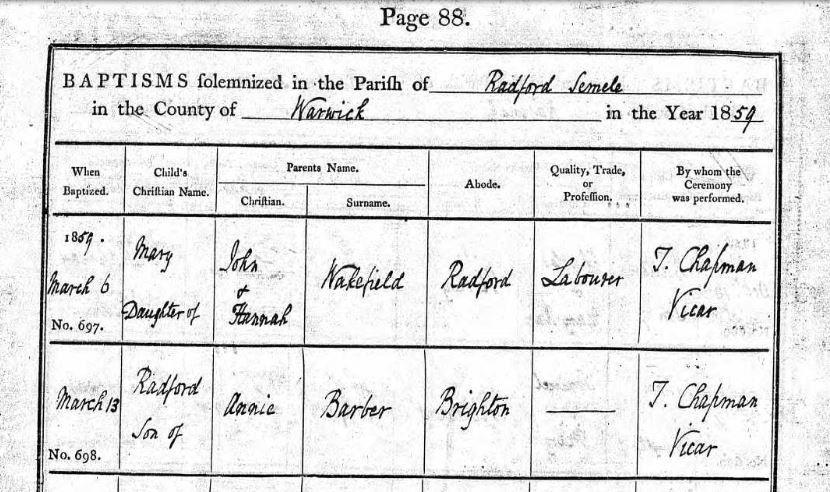 Page 88.
BAPTISMS solemnized in the Parish of Radford Semele
in the County of Warwick in the Year 1859
When Baptized.
Child's Christian Name.
Parents Name.
Christian.
Surname.
Abode.
Quality, Trade, or Profession.
By whom the Ceremony was performed.
1859.
March 6
No. 697.
Mary
Daughter of
John
&
Hannah
Wakefield
Radford
Labourer
T. Chapman
Vicar
March 13
No. 698.
Radford
Son of
Annie
Barber
Brighton
T. Chapman
Vicar